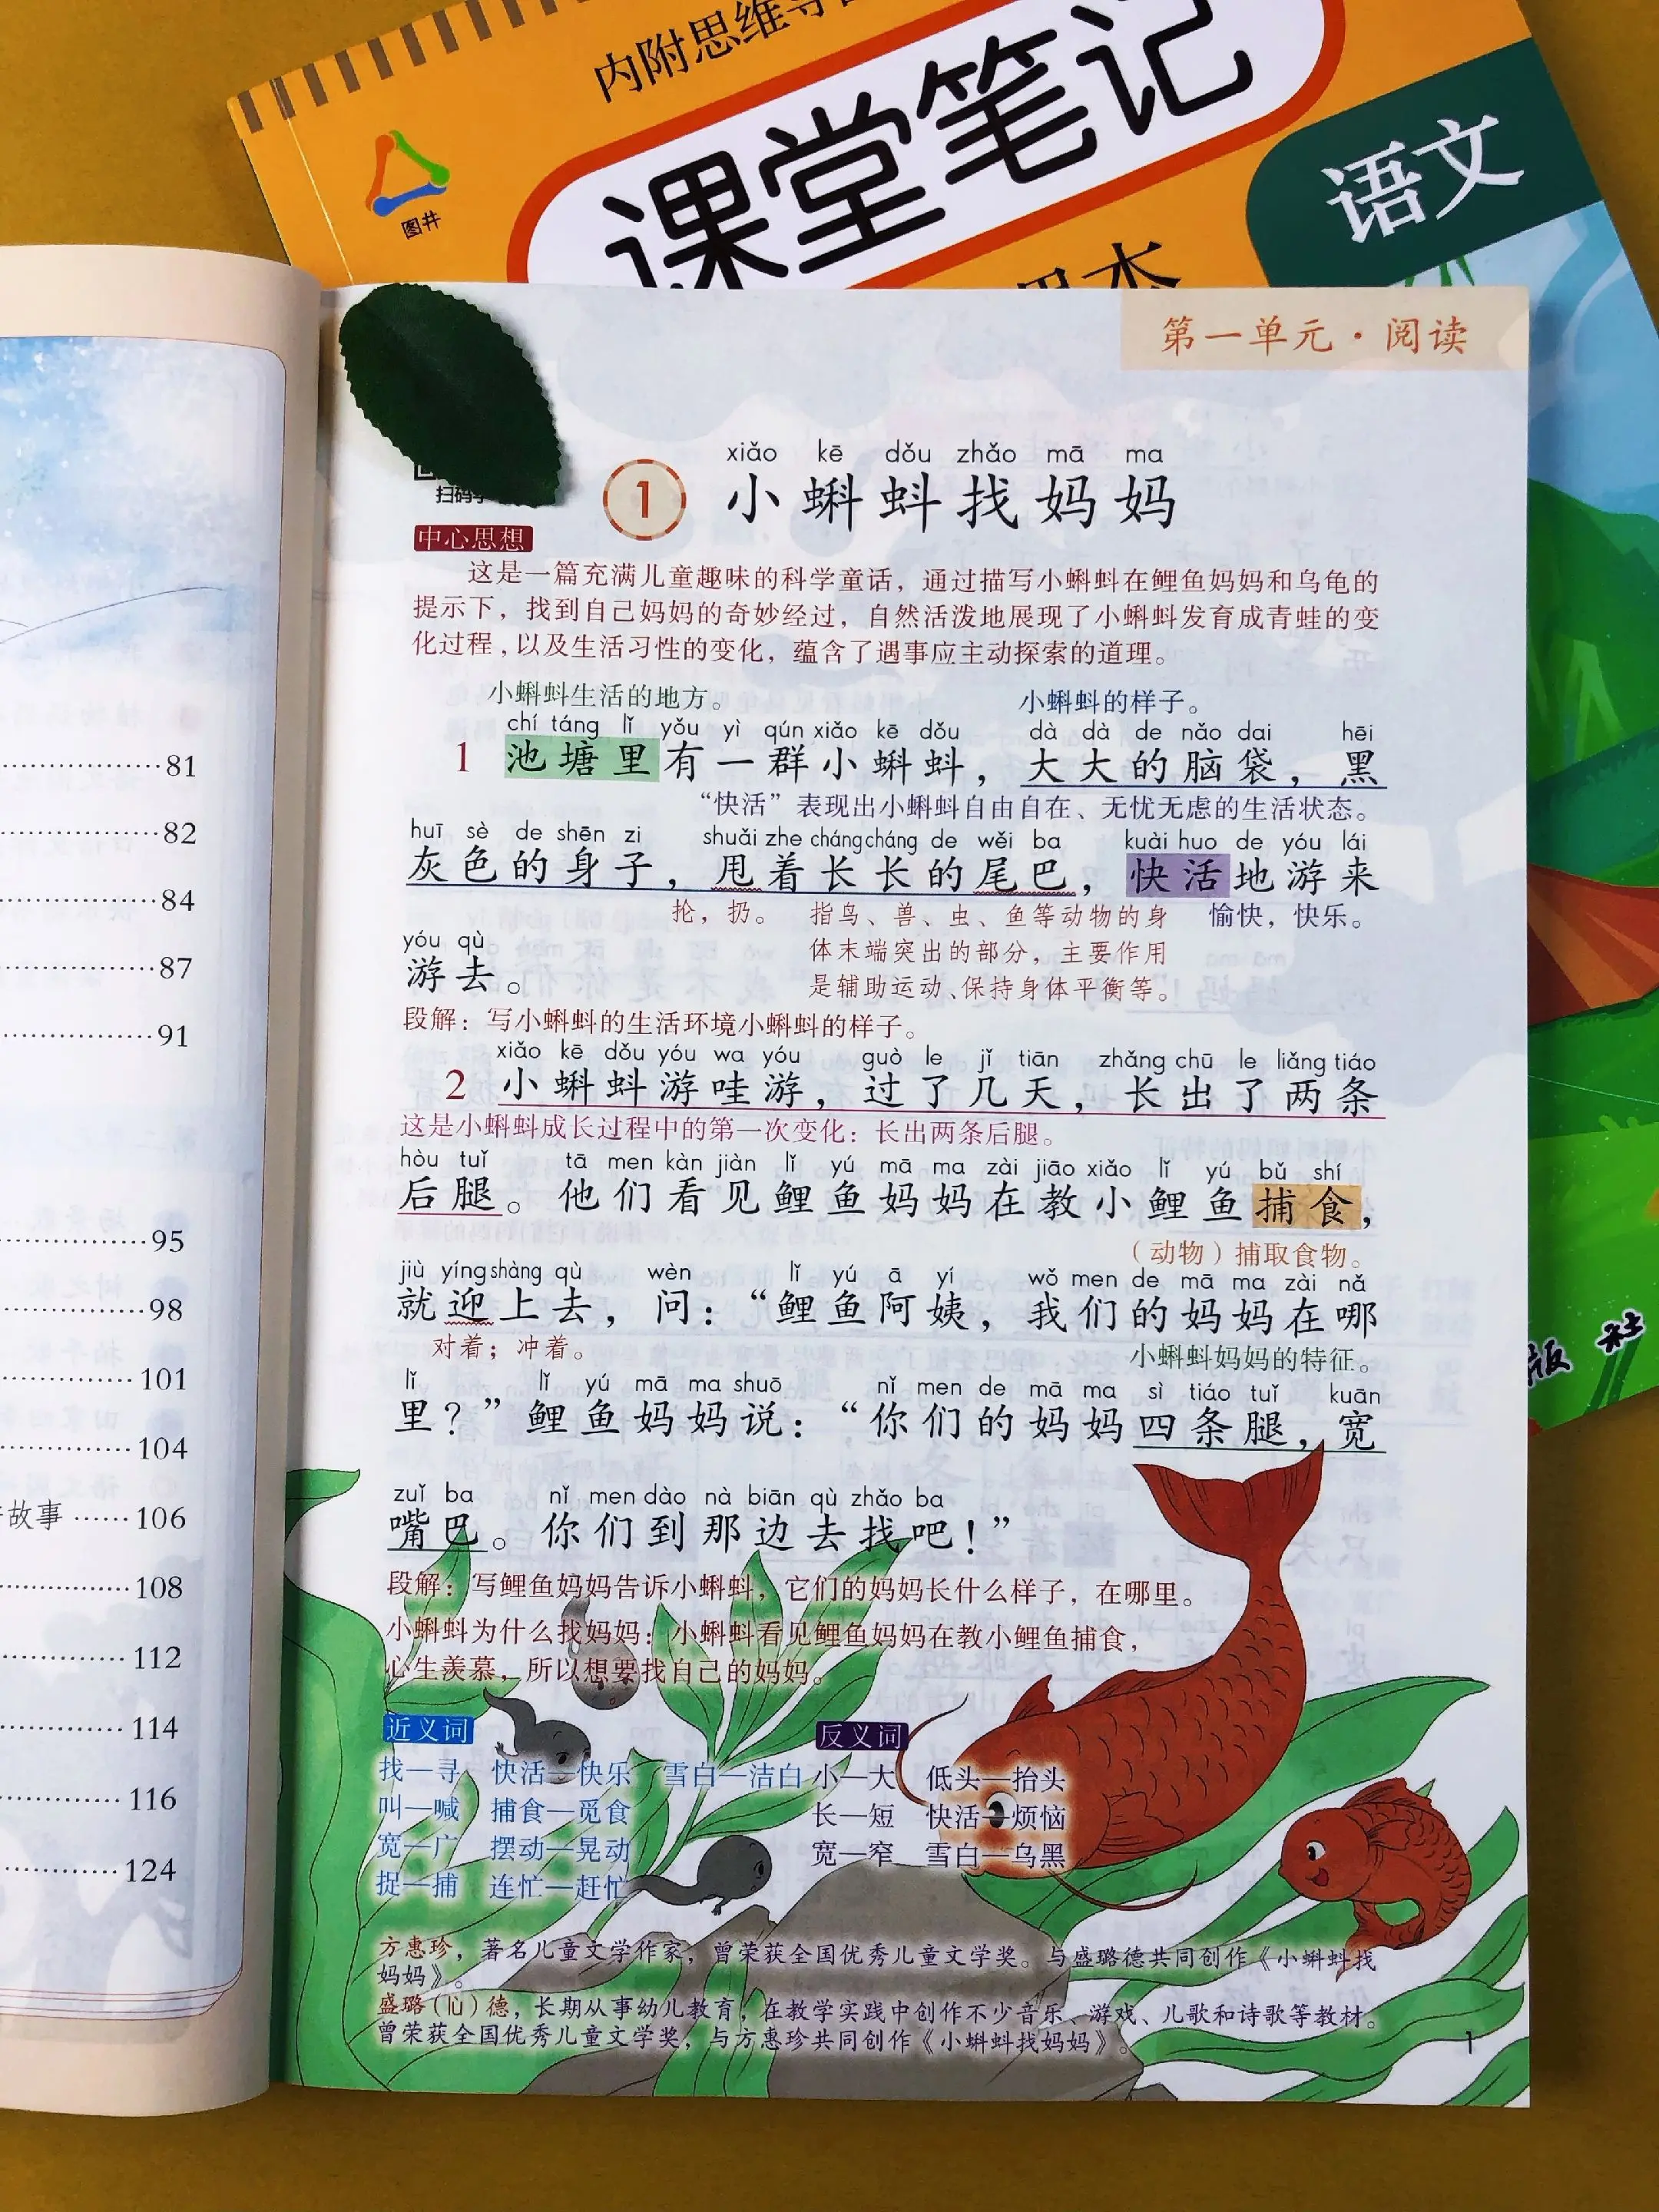 内附思维导
图井
课堂笔记
语文
课本
第一单元·阅读
xiǎo kē dǒu zhǎo mā ma
1 小蝌蚪找妈妈
中心思想
这是一篇充满儿童趣味的科学童话，通过描写小蝌蚪在鲤鱼妈妈和乌龟的
提示下，找到自己妈妈的奇妙经过，自然活泼地展现了小蝌蚪发育成青蛙的变
化过程，以及生活习性的变化，蕴含了遇事应主动探索的道理。
小蝌蚪生活的地方。 小蝌蚪的样子。
chí táng lǐ yǒu yì qún xiǎo kē dǒu dà dà de nǎo dai hēi
1 池塘里有一群小蝌蚪，大大的脑袋，黑
“快活”表现出小蝌蚪自由自在、无忧无虑的生活状态。
huī sè de shēn zi shuǎi zhe cháng cháng de wěi ba kuài huo de yóu lái
灰色的身子，甩着长长的尾巴，快活地游来
抡，扔。 指鸟、兽、虫、鱼等动物的身 愉快，快乐。
yóu qù
体末端突出的部分，主要作用
游去。
是辅助运动、保持身体平衡等。
段解：写小蝌蚪的生活环境小蝌蚪的样子。
xiǎo kē dǒu yóu wa yóu guò le jǐ tiān zhǎng chū le liǎng tiáo
2 小蝌蚪游哇游，过了几天，长出了两条
这是小蝌蚪成长过程中的第一次变化：长出两条后腿。
hòu tuǐ tā men kàn jiàn lǐ yú mā ma zài jiāo xiǎo lǐ yú bǔ shí
后腿。他们看见鲤鱼妈妈在教小鲤鱼捕食，
（动物）捕取食物。
jiù yíng shàng qù wèn lǐ yú ā yí wǒ men de mā ma zài nǎ
就迎上去，问：“鲤鱼阿姨，我们的妈妈在哪
对着；冲着。 小蝌蚪妈妈的特征。
lǐ lǐ yú mā ma shuō nǐ men de mā ma sì tiáo tuǐ kuān
里？”鲤鱼妈妈说：“你们的妈妈四条腿，宽
zuǐ ba nǐ men dào nà biān qù zhǎo ba
嘴巴。你们到那边去找吧！”
段解：写鲤鱼妈妈告诉小蝌蚪，它们的妈妈长什么样子，在哪里。
小蝌蚪为什么找妈妈：小蝌蚪看见鲤鱼妈妈在教小鲤鱼捕食，
心生羡慕，所以想要找自己的妈妈。
近义词 反义词
找—寻 快活—快乐 雪白—洁白 小—大 低头—抬头
叫—喊 捕食—觅食 长—短 快活—烦恼
宽—广 摆动—晃动 宽—窄 雪白—乌黑
捉—捕 连忙—赶忙
方惠珍，著名儿童文学作家，曾荣获全国优秀儿童文学奖。与盛璐德共同创作《小蝌蚪找
妈妈》。
盛璐（lù）德，长期从事幼儿教育，在教学实践中创作不少音乐、游戏、儿歌和诗歌等教材。
曾荣获全国优秀儿童文学奖，与方惠珍共同创作《小蝌蚪找妈妈》。
1
81
82
84
87
91
95
98
101
104
故事 106
108
112
114
116
124
版社